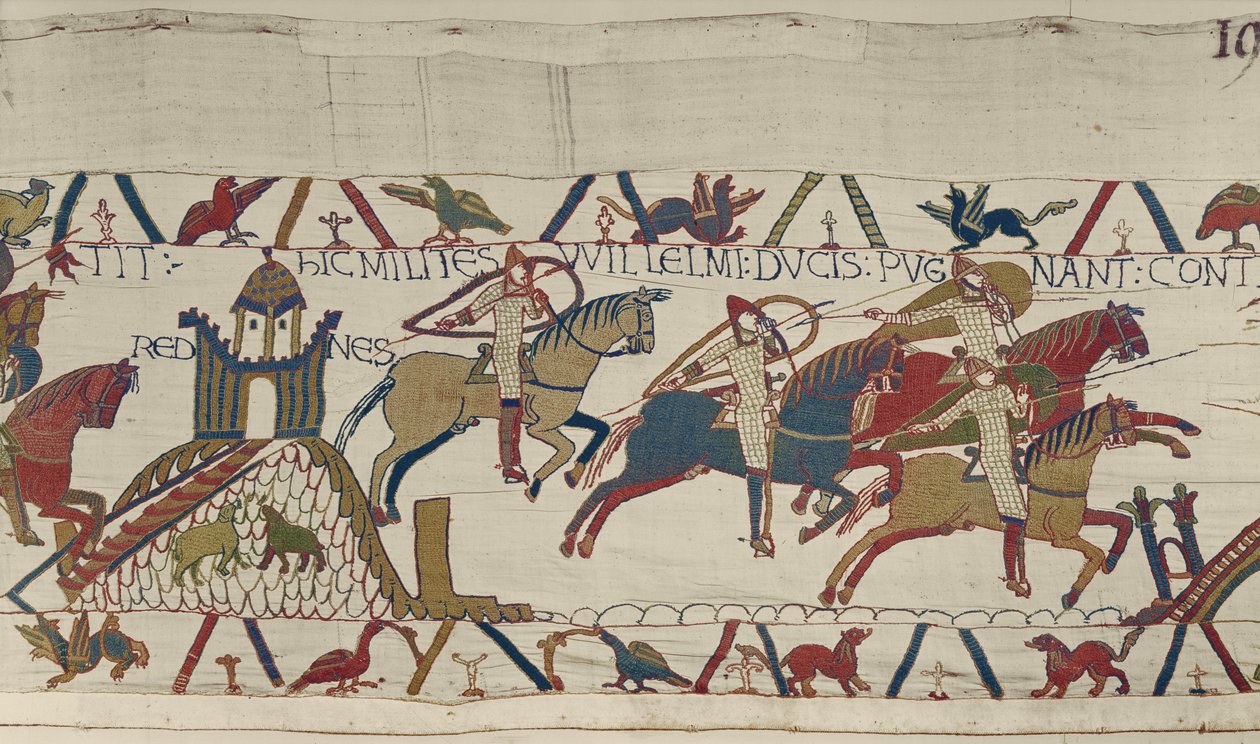 19
TIT :- hIC MILITES VVILLELMI : DVCIS : PVGNANT : CONT
REDNES